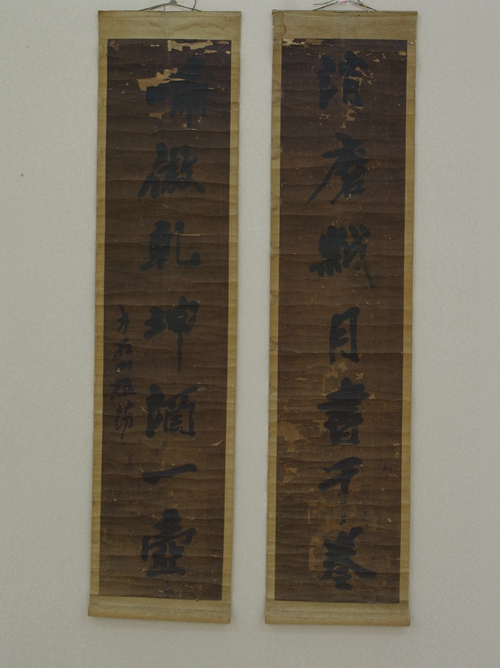 消磨歲月書千卷
嘯傲乾坤酒一壺